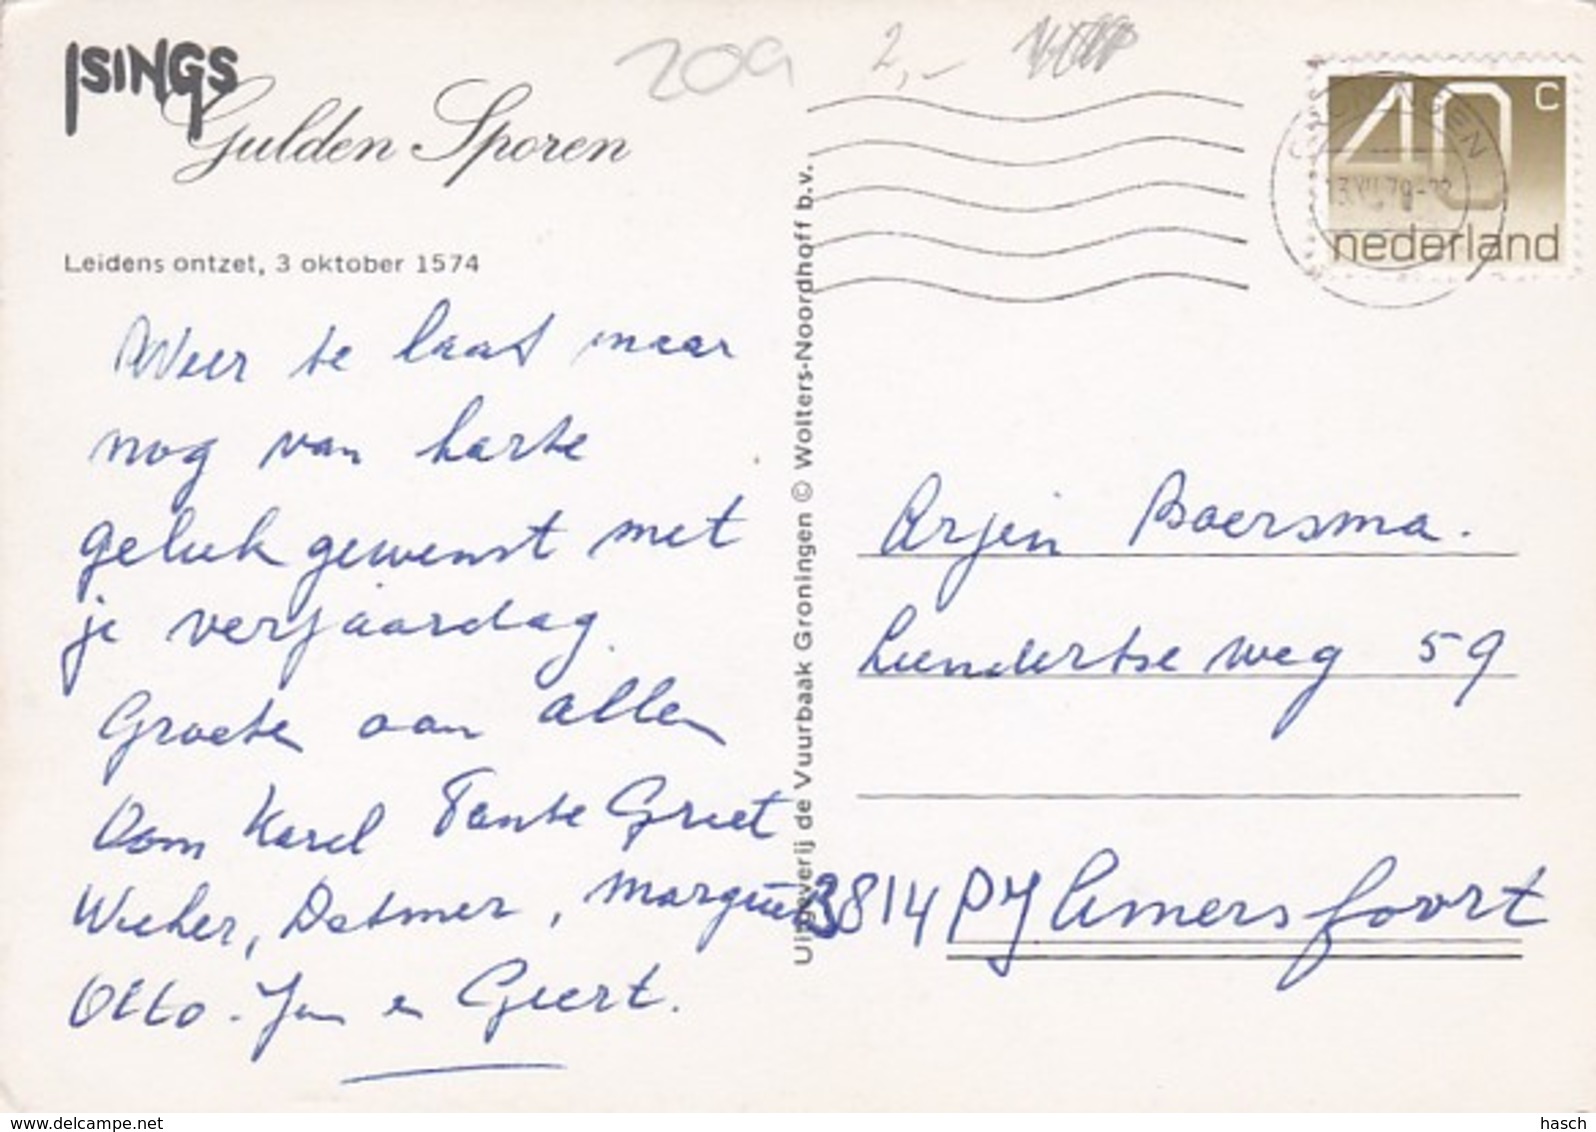 ISINGS
Gulden Sporen
209
2,-
40 c
nederland
Leidens ontzet, 3 oktober 1574
Weer te laat maar
nog van harte
geluk gewenst met
je verjaardag.
Groeten aan allen
Oom Karel Tante Griet
Wieher, Detmer, Margriet
Otto - Jan en Geert.
Uitgeverij de Vuurbaak Groningen © Wolters-Noordhoff b.v.
Arjen Boersma.
Leendertseweg 59
3814 PJ Amersfoort
www.delcampe.net
hasch